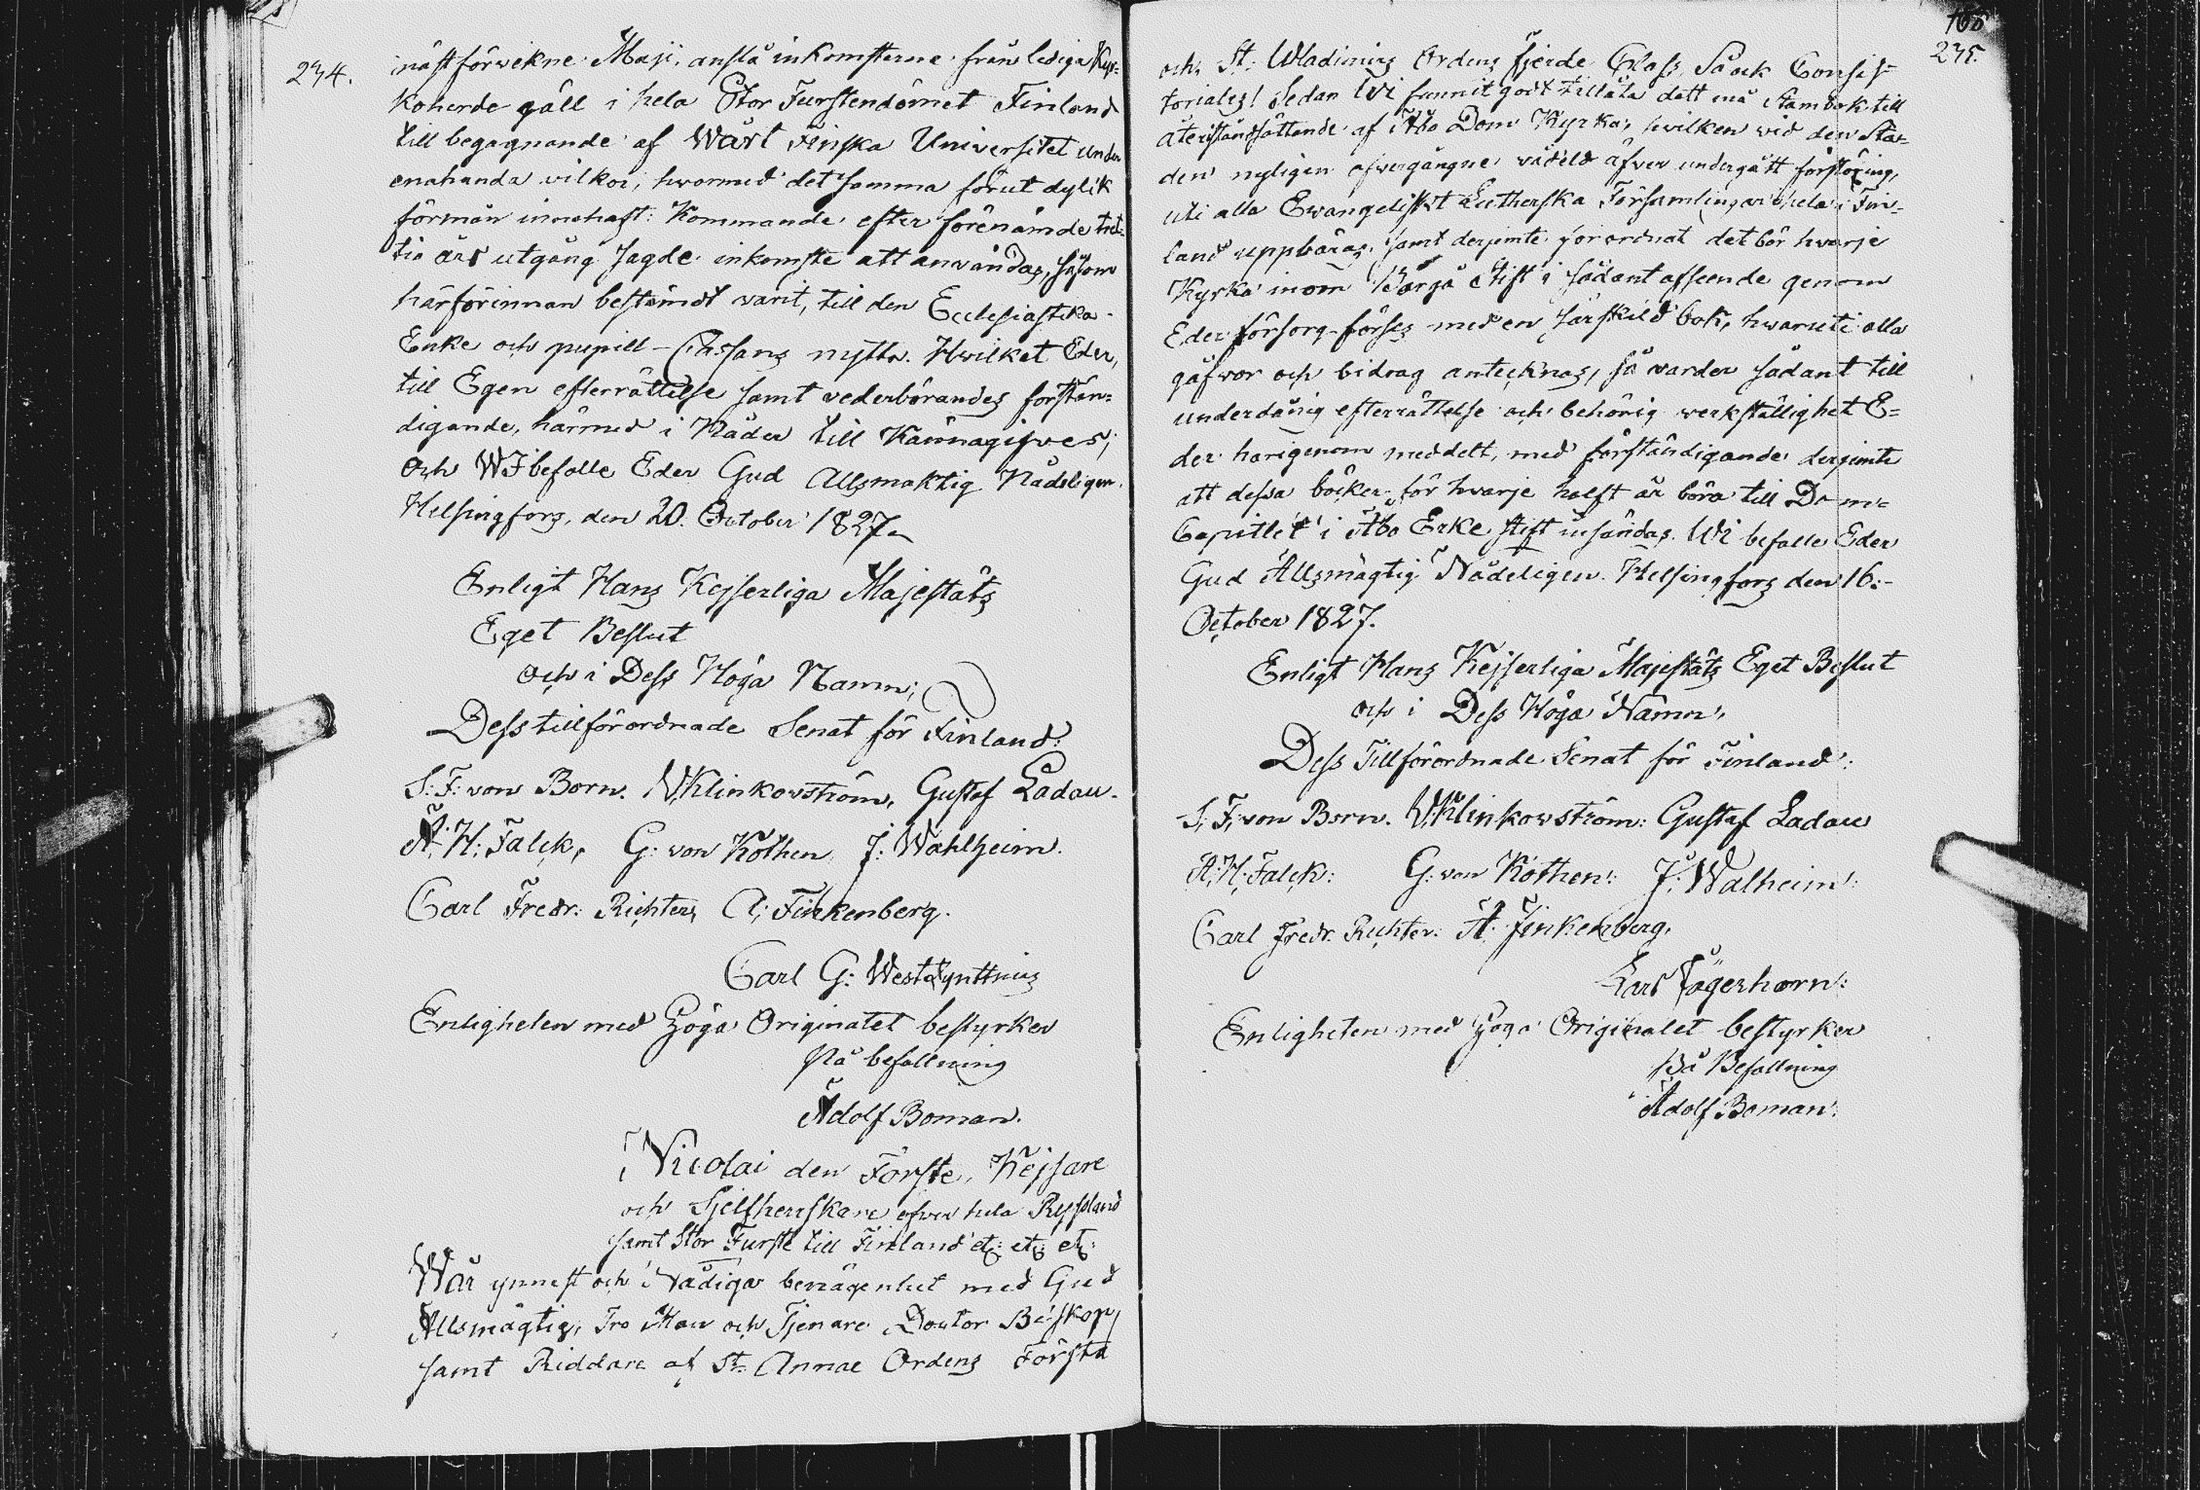 234.
näst förvekne Maji, anslå inkomsterne från lediga Kyr=
koherde gäll i hela Stor Furstendömet Finland
till begagnande af Wårt Finska Universitet under
enahanda vilkor, hvarmed det samma förut dylik
förmån innehaft: Kommande efter förenämde tret=
tio års utgång sagde inkomste att användas, såsom
härförinnan bestämdt varit, till den Ecclesiastika
Enke och pupill-Cassans nytta. Hvilket Eder,
till Egen efterrättelse samt vederbörandes förstän=
digande, härmed i Nåder till Kännagifves;
Och WI befalle Eder Gud Allsmäktig Nådeligen.
Helsingfors, den 20. October 1827.
Enligt Hans Kejserliga Majestäts
Eget Beslut
och i Dess Höga Namn;
Dess tillförordnade Senat för Finland:
S: F: von Born. V. Klinkovström, Gustaf Ladau.
A: H: Falck, G: von Köthen, J: Wahlheim.
Carl Fredr: Richter, A: Finkenberg.
Carl G: West Lynttnius
Enligheten med Höga Originalet bestyrker
På befallning
Adolf Boman.
Nicolai den Förste, Kejsare
och Sjelfherrskare öfver hela Ryssland
samt Stor Furste till Finland etc: etc: etc:
Wår ynnest och Nådiga benägenhet med Gud
Allsmägtig, Tro Man och Tjenare Doctor Biskop
samt Riddare af St: Annae Ordens Första
235.
och St: Wladimirs Ordens fjerde Class, Så ock Consis=
toriales! Sedan Wi funnit godt tillåta dett må Stambok till
återiståndsättande af Åbo Dom Kyrka, hvilken vid den Sta=
den nyligen öfvergångne vådeld äfven undergått förstöring,
uti alla Evangeliskt Lutherska Församlingar i hela Fin=
land uppbäras, samt derjemte förordnat det bör hvarje
Kyrka inom Borgå Stift i sådant afseende genom
Eder försorg förses med en särskild bok, hvaruti alla
gåfvor och bidrag antecknas, så varder sådant till
underdånig efterrättelse och behörig verkställighet E=
der harigenom meddelt, med förständigande derjemte
att dessa böcker för hvarje halft år böra till Dom=
Capitlet i Åbo Erke stift insändas. Wi befalle Eder
Gud Allsmägtig Nådeligen. Helsingfors den 16:
October 1827.
Enligt Hans Kejserliga Majestäts Eget Beslut
och i Dess Höga Namn,
Dess Tillförordnade Senat för Finland:
S: F: von Born. V. Klinkowström: Gustaf Ladau
A: H: Falck: G: von Köthen: J: Walheim:
Carl Fredr. Richter. A. Finkenberg.
Lars Jägerhorn:
Enligheten med Höga Originalet bestyrker
På Befallning
Adolf Boman: